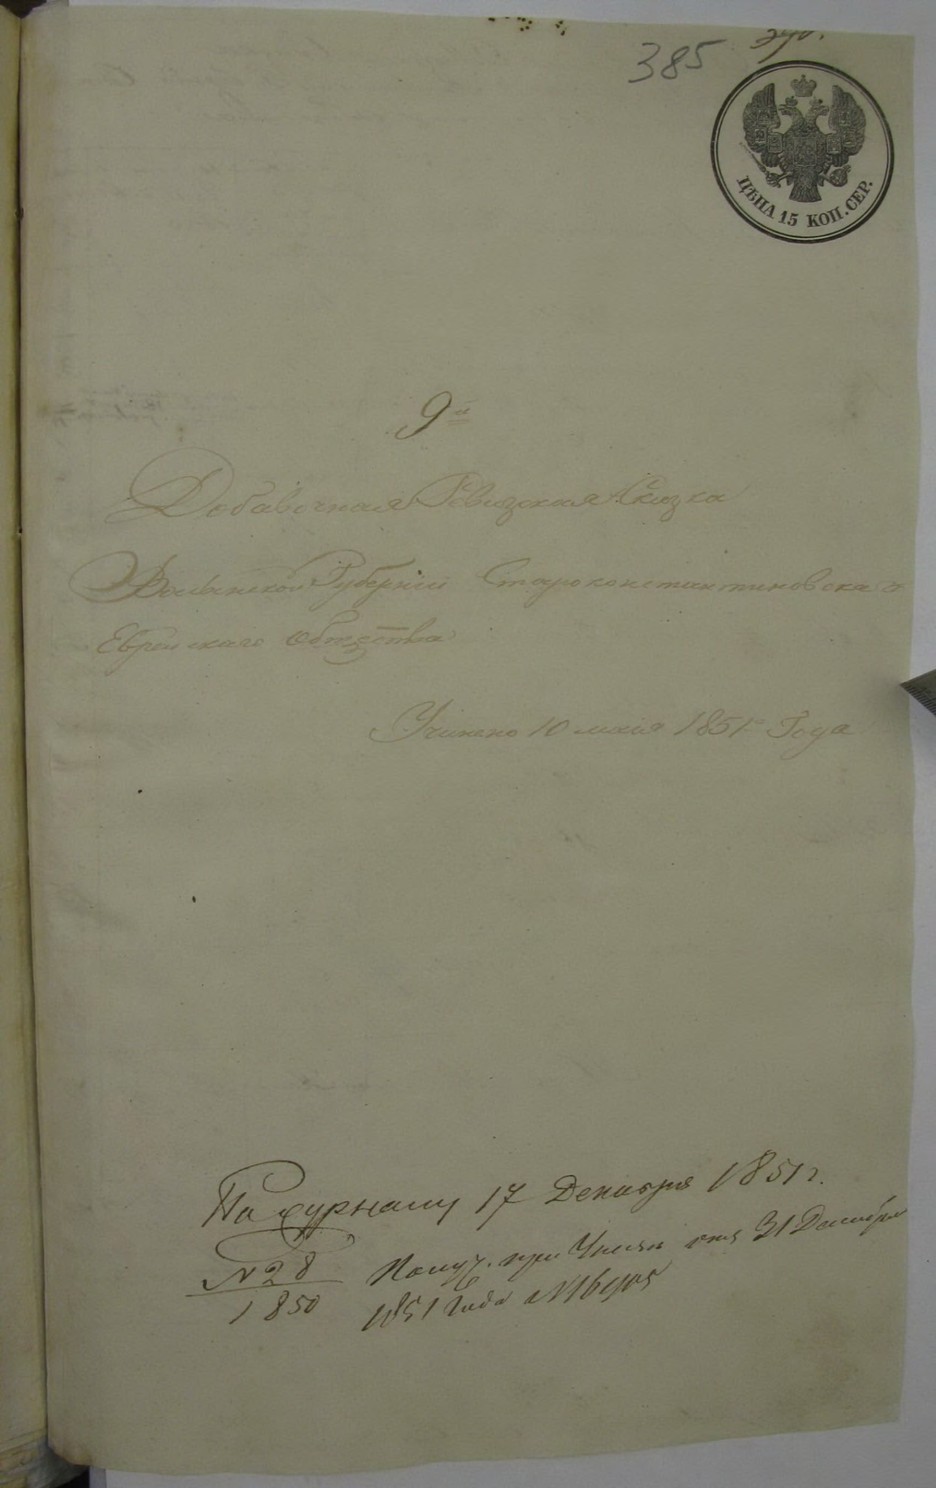 385
ЦѢНА 15 КОП. СЕР.
9я
Добавочная Ревизская Сказка
Волынской Губернии Староконстантиновскаго
Еврейскаго Общества
Учинено 10 мая 1851го Года
По журналу 17 Декабря 1851 г.
№ 28 Получ. при Указе отъ 31 Декабря
1850 1851 Года №